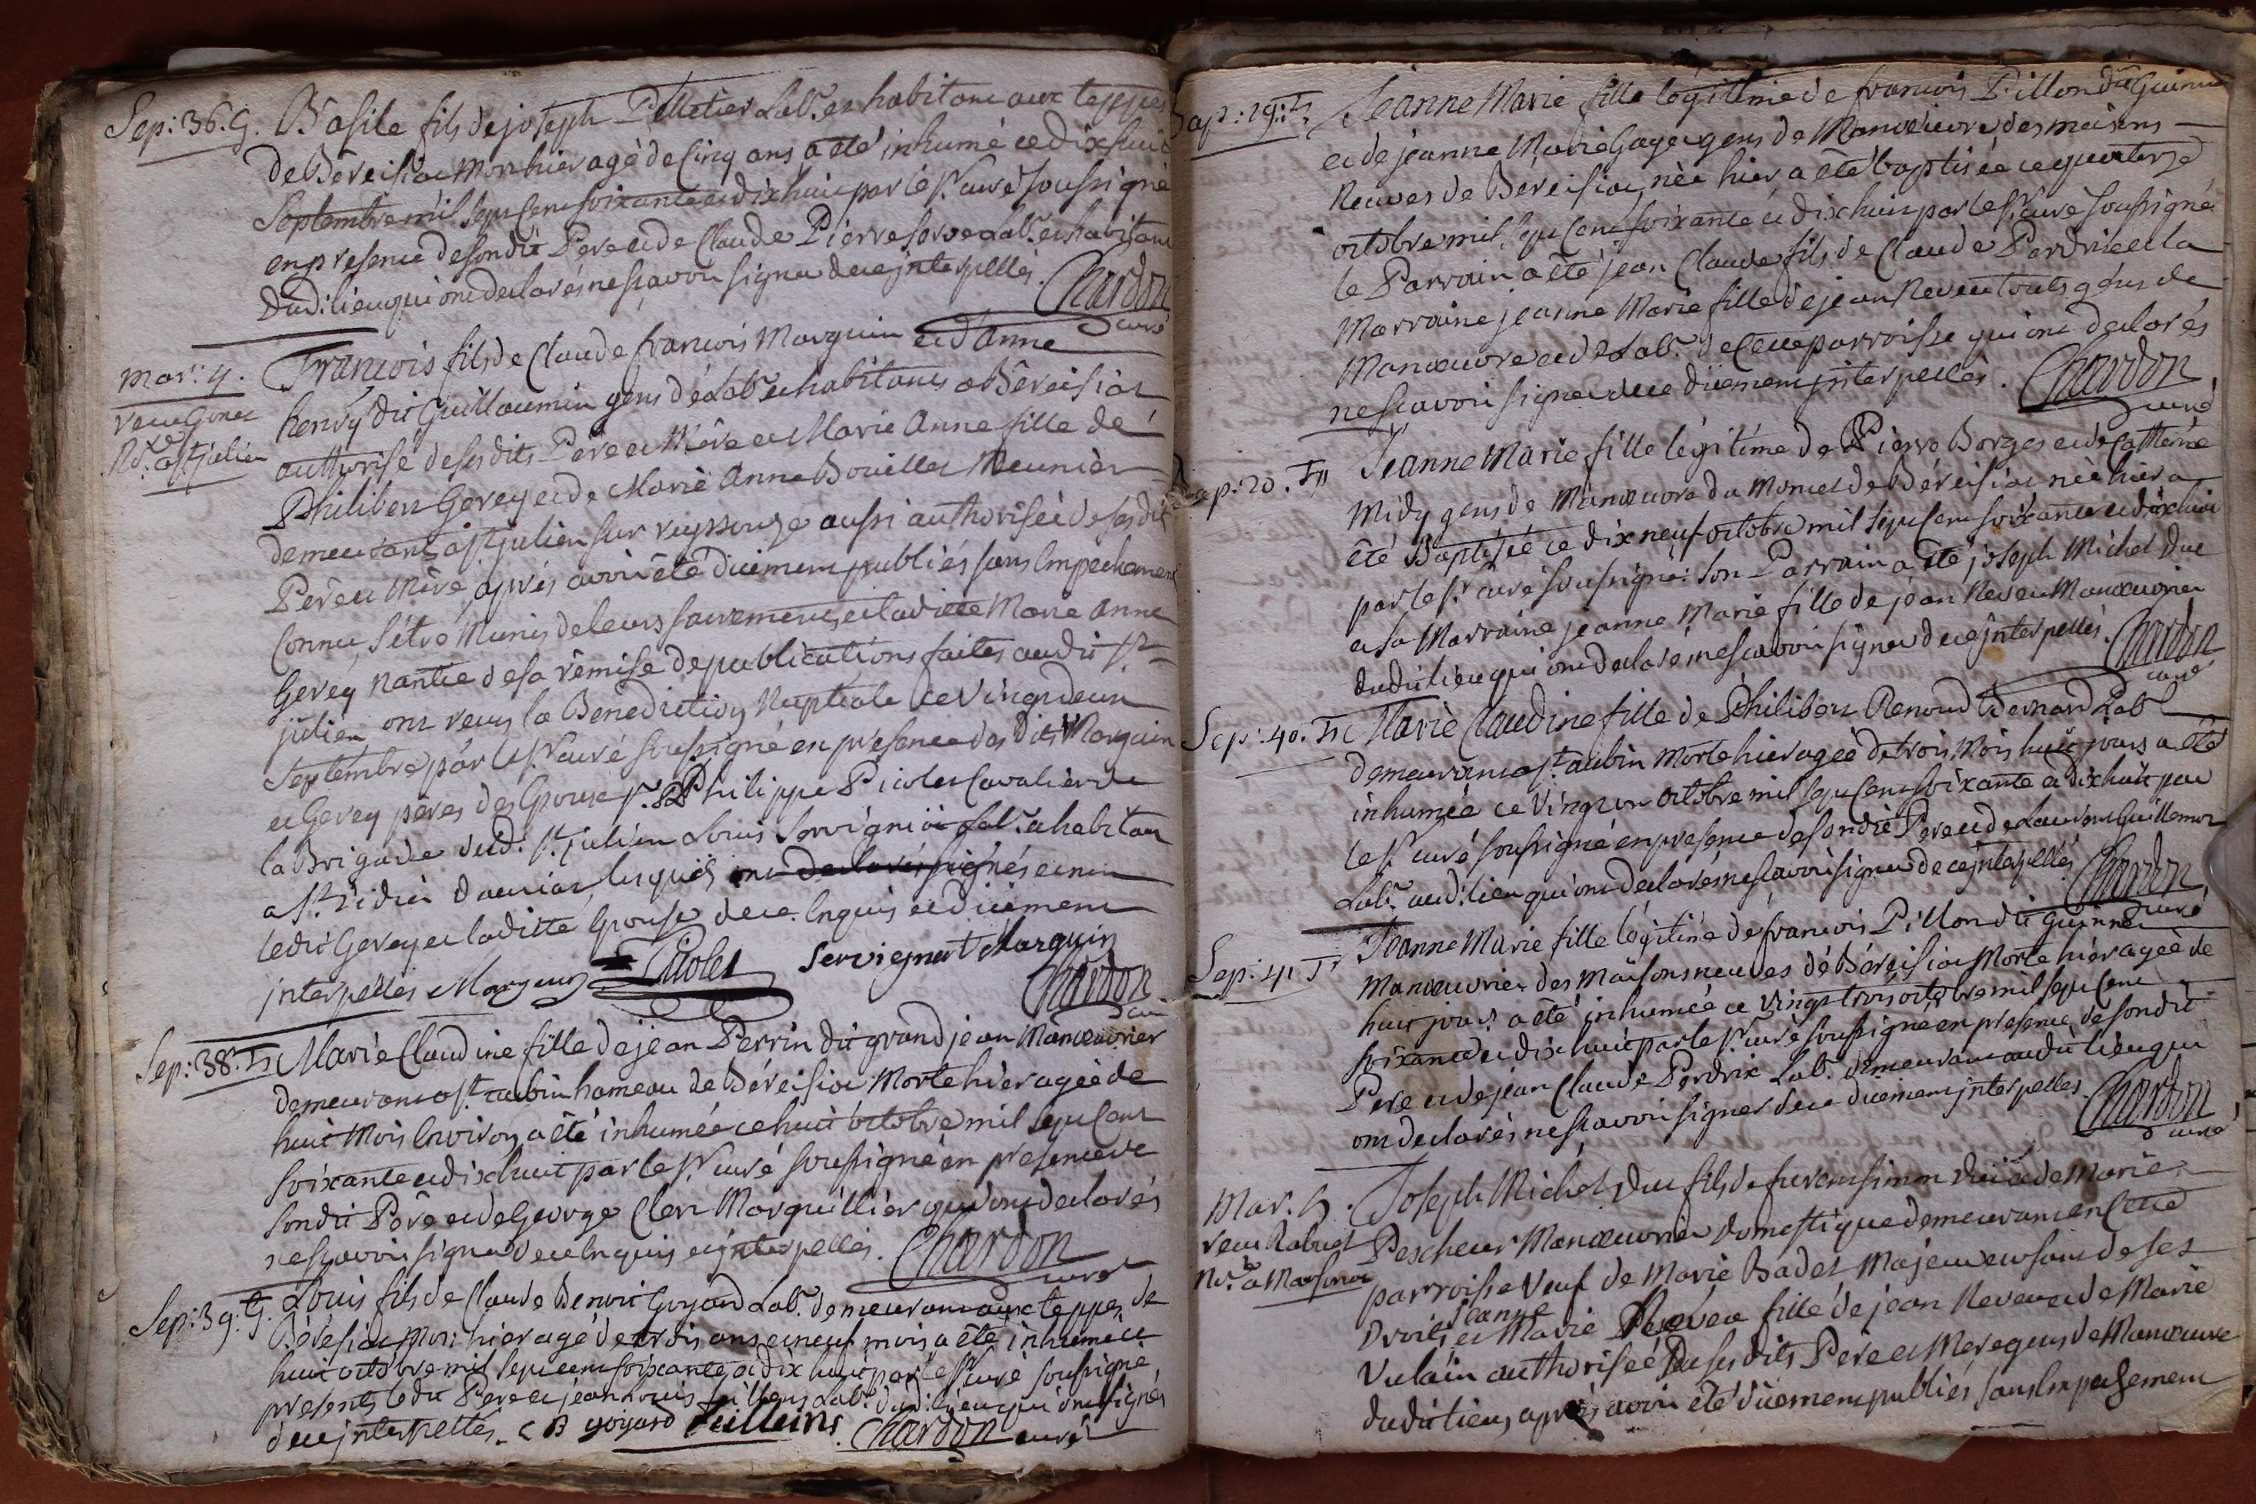 Sep: 36. G. Basile fils de joseph Pelletier Lab.r et habitant aux teppes
de Béreisiat mort hier agé de Cinq ans a été inhumé ce dix huit
Septembre mil sept Cent soixante et dix huit par le S.r curé soussigné
en presence de sondit Pere et de Claude Pierre Serve Lab.r et habitant
dud: lieu qui ont declarés ne sçavoir signer de ce jnterpellés.
Chardon
curé
Mar: 4.
Francois fils de Claude francois Marguin et d'Anne
henry dit Guillaumin gens de Lab.r et habitants a Béreisiat
authorisé de sesdits Pere et Mère et Marie Anne fille de
a st julien
Philibert Gerey et de Marie Anne Bouillet Meunier
demeurants a st julien sur reyssouze aussi authorisée de sesdits
Père et Mère, aprés avoir été düement publiés sans Empechement
Connu, s'étre Munis de leurs sacrements, et laditte Marie Anne
Gerey nantie de sa rémise de publications faites audit st
julien ont reçus la Bénédiction Nuptiale ce vingt deux
Septembre par le S.r curé soussigné en presence des dits Marguin
et Gerey peres des Epoux, s.r Philippe Picolet Cavalier de
la Brigade dud: st julien Louis Servigniat Lab.r et habitant
a st Didié d'aussiat, lesquels ont declarés signés et non
ledit Gerey et laditte Epouse de ce Enquis et düement
jnterpellés Marguin Picolet Servignat Marguin
Chardon
curé
Sep: 38. F. Marie Claudine fille de jean Perrin dit grand jean Manœuvrier
demeurant a st aubin hameau de Béreisiat Morte hier agée de
huit Mois Environ a été inhumée ce huit octobre mil sept Cent
soixante et dix huit par le S.r curé soussigné en presence de
sondit Père et de George Clerc Marguillier qui ont declarés
ne sçavoir signer de ce Enquis et jnterpellés.
Chardon
curé
Sep: 39. G. Louis fils de Claude Benoit Goyard Lab.r demeurant aux teppes de
Béresiat Mort hier agé de trois ans et neuf mois a été inhumé ce
huit octobre mil sept cent soixante et dix huit par le S.r curé soussigné
presents ledit Pere et jean Louis Lab.r dud: lieu qui ont signés
de ce jnterpellés. C B goyard Chardon curé
Bap: 19. F. Jeanne Marie fille legitime de francois Pillon dit Guinne
et de jeanne Marie Gagey gens de Manœuvre des maisons
Neuves de Béreisiat, née hier a été baptisée ce quatorze
octobre mil sept Cent soixante et dix huit par le S.r curé soussigné
le Parrain a été jean Claude fils de Claude Perdrix et la
Marraine jeanne Marie fille de jean Reveu touts gens de
Manœuvre et de Lab.r de Cette parroisse qui ont declarés
ne sçavoir signer de ce düement jnterpellés.
Chardon
curé
Bap: 20. F. Jeanne Marie fille légitime de Pierre Borges et de Catherine
Midy gens de Manœuvre du Moncel de Béreisiat née hier a
été Baptisée ce dix neuf octobre mil sept Cent soixante et dix huit
par le S.r curé soussigné: son Parrain a été joseph Michel Duc
et sa Marraine jeanne Marie fille de jean Reveu Manœuvrier
dudit lieu qui ont declarés ne sçavoir signer de ce jnterpellés.
Chardon
curé
Sep: 40. F. Marie Claudine fille de Philibert Renoud Bernard Lab.r
demeurant a st aubin Morte hier agée de trois Mois huit jours a été
inhumée ce Vingt un octobre mil sept Cent soixante et dix huit par
le S.r curé soussigné en presence de sondit Pere et de Laurent Guillemot
Lab.r aud: lieu qui ont declarés ne sçavoir signer de ce jnterpellés
Chardon
curé
Sep: 41 F. Jeanne Marie fille légitime de francois Pillon dit Guinne
Manœuvrier des Maisons neuves de Béreisiat Morte hier agée de
huit jours a été inhumée ce Vingt trois octobre mil sept Cent
soixante et dix huit par le S.r curé soussigné en presence de sondit
Pere et de jean Claude Perdrix Lab.r demeurant audit lieu qui
ont declarés ne sçavoir signer de ce düement jnterpellés
Chardon
curé
Mar. 5. Joseph Michel Duc fils de Duc et de Marie
Pescheur Manœuvrier domestique demeurant en Cette
parroisse Veuf de Marie Badet Majeur et usant de ses
Droits, et jeanne Marie Reveu fille de jean Reveu et de Marie
Vulain authorisée de sesdits Père et Mere gens de Manœuvre
dudit lieu, aprés avoir été düement publiés sans Empechement